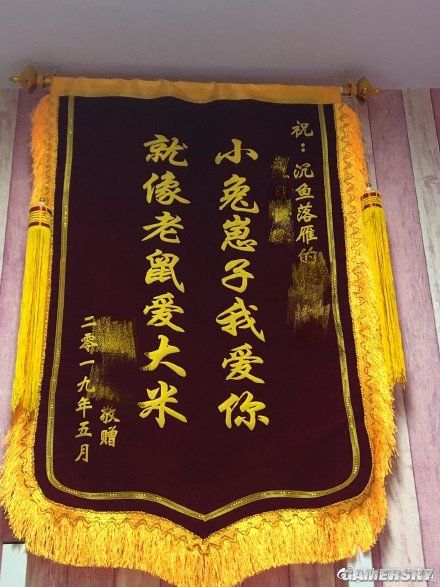 祝：沉鱼落雁的
小兔崽子我爱你
就像老鼠爱大米
敬赠
二零一九年五月
GAMERSKY